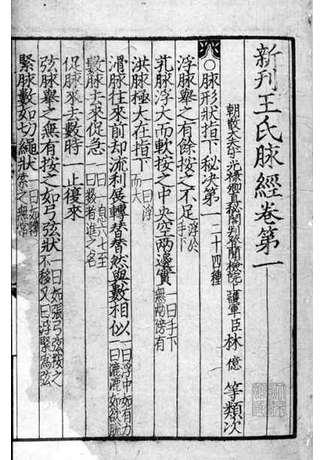 新刊王氏脉經卷第一
朝散大夫守光祿卿直秘閣判登聞檢院上護軍臣林億等類次
脉形狀指下秘决第一二十四種
浮脉舉之有餘按之不足浮於手下
芤脉浮大而軟按之中央空兩邊實一曰手下無兩傍有
洪脉極大在指下一曰浮而大
滑脉往來前却流利展轉替替然與數相似一曰浮中如有力一曰漉漉如欲脱
數脉去來促急一曰一息六七至一曰數者進之名
促脉來去數時一止復來
弦脉舉之無有按之如弓弦狀一曰如張弓弦按之不移又曰浮緊爲弦
緊脉數如切繩狀一曰如轉索之無常